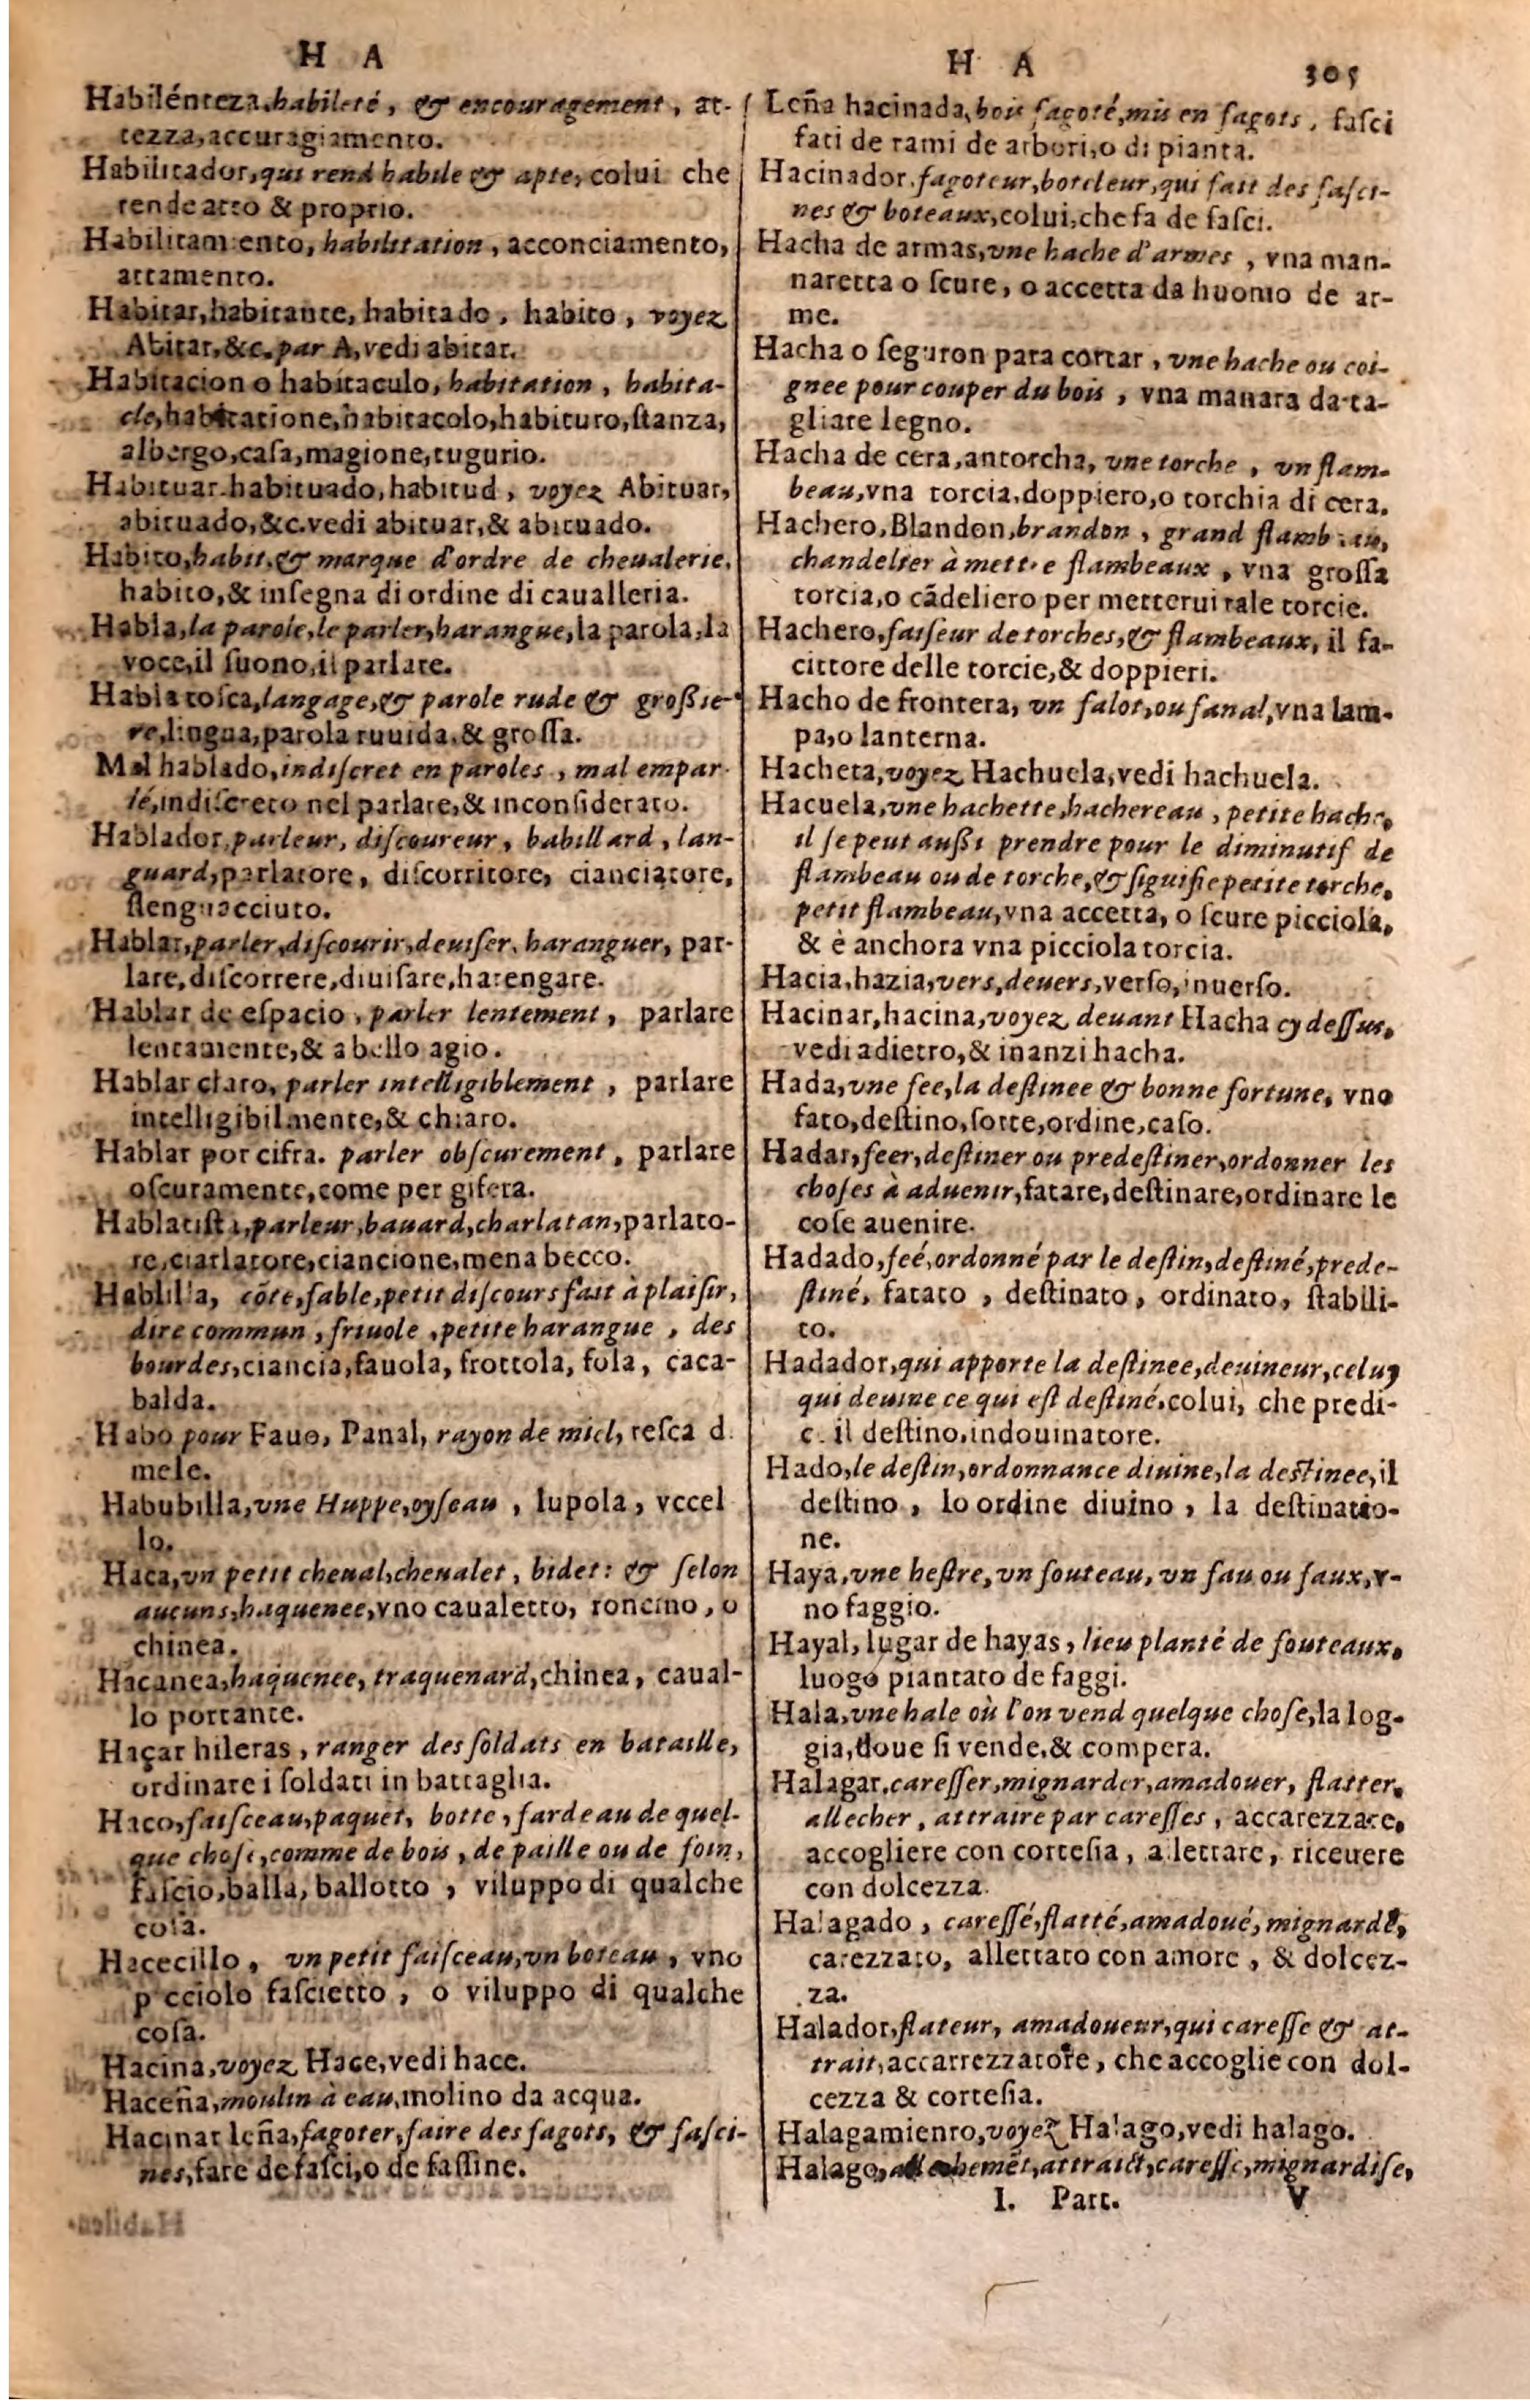 H A
Habilénteza, habileté, & encouragement, at-
tezza, accuragiamento.
Habilitador, qui rend habile & apte, colui che
rende atto & proprio.
Habilitamiento, habilitation, acconciamento,
attamento.
Habitar, habitante, habitado, habito, voyez
Abitar, &c. par A, vedi abitar.
Habitacion o habitaculo, habitation, habita-
cle, habitatione, habitacolo, habituro, ſtanza,
albergo, caſa, magione, tugurio.
Habituar habituado, habitud, voyez Abituar,
abituado, &c. vedi abituar, & abituado.
Habito, habit, & marque d'ordre de cheualerie,
habito, & inſegna di ordine di caualleria.
Habla, la parole, le parler, harangue, la parola, la
voce, il ſuono, il parlare.
Habla toſca, langage, & parole rude & groſsie-
re, lingua, parola ruuida, & groſſa.
Mal hablado, indiſcret en paroles, mal empar-
lé, indiſcreto nel parlare, & inconſiderato.
Hablador, parleur, diſcoureur, babillard, lan-
guard, parlatore, diſcorritore, cianciatore,
ſlenguacciuto.
Hablar, parler, diſcourir, deuiſer, haranguer, par-
lare, diſcorrere, diuiſare, harengare.
Hablar de eſpacio, parler lentement, parlare
lentamente, & a bello agio.
Hablar claro, parler intelligiblement, parlare
intelligibilmente, & chiaro.
Hablar por cifra. parler obſcurement, parlare
oſcuramente, come per gifera.
Hablatiſta, parleur, bauard, charlatan, parlato-
re, ciarlatore, ciancione, mena becco.
Hablilla, cõte, fable, petit diſcours fait à plaiſir,
dire commun, friuole, petite harangue, des
bourdes, ciancia, fauola, frottola, fola, caca-
balda.
Habo pour Fauo, Panal, rayon de miel, reſca d
mele.
Habubilla, vne Huppe, oyſeau, lupola, vccel
lo.
Haca, vn petit cheual, cheualet, bidet: & ſelon
aucuns, haquenee, vno caualetto, roncino, o
chinea.
Hacanea, haquenee, traquenard, chinea, caual-
lo portante.
Haçar hileras, ranger des ſoldats en bataille,
ordinare i ſoldati in battaglia.
Haco, faiſceau, paquet, botte, fardeau de quel-
que choſe, comme de bois, de paille ou de foin,
faſcio, balla, ballotto, viluppo di qualche
coſa.
Hacecillo, vn petit faiſceau, vn boteau, vno
picciolo faſcietto, o viluppo di qualche
coſa.
Hacina, voyez Hace, vedi hace.
Haceña, moulin à eau, molino da acqua.
Hacinar leña, fagoter, faire des fagots, & faſci-
nes, fare de faſci, o de faſſine.
H A 305
Leña hacinada, bois fagoté, mis en fagots, faſci
fati de rami de arbori, o di pianta.
Hacinador, fagoteur, boteleur, qui fait des faſci-
nes & boteaux, colui, che fa de faſci.
Hacha de armas, vne hache d'armes, vna man-
naretta o ſcure, o accetta da huomo de ar-
me.
Hacha o ſeguron para cortar, vne hache ou coi-
gnee pour couper du bois, vna manara da ta-
gliare legno.
Hacha de cera, antorcha, vne torche, vn flam-
beau, vna torcia, doppiero, o torchia di cera.
Hachero, Blandon, brandon, grand flambeau,
chandelier à mettre flambeaux, vna groſſa
torcia, o cãdeliero per metterui tale torcie.
Hachero, faiſeur de torches, & flambeaux, il fa-
cittore delle torcie, & doppieri.
Hacho de frontera, vn falot, ou fanal, vna lam-
pa, o lanterna.
Hacheta, voyez Hachuela, vedi hachuela.
Hacuela, vne hachette, hachereau, petite hache,
il ſe peut auſsi prendre pour le diminutif de
flambeau ou de torche, & ſignifie petite torche,
petit flambeau, vna accetta, o ſcure picciola,
& è anchora vna picciola torcia.
Hacia, hazia, vers, deuers, verſo, inuerſo.
Hacinar, hacina, voyez deuant Hacha cy deſſus,
vedi adietro, & inanzi hacha.
Hada, vne fee, la deſtinee & bonne fortune, vno
fato, deſtino, ſorte, ordine, caſo.
Hadar, feer, deſtiner ou predeſtiner, ordonner les
choſes à aduenir, fatare, deſtinare, ordinare le
coſe auenire.
Hadado, feé, ordonné par le deſtin, deſtiné, prede-
ſtiné, fatato, deſtinato, ordinato, ſtabili-
to.
Hadador, qui apporte la deſtinee, deuineur, celuy
qui deuine ce qui eſt deſtiné, colui, che predi-
c. il deſtino, indouinatore.
Hado, le deſtin, ordonnance diuine, la deſtinee, il
deſtino, lo ordine diuino, la deſtinatio-
ne.
Haya, vne heſtre, vn fouteau, vn fau ou faux, v-
no faggio.
Hayal, lugar de hayas, lieu planté de fouteaux,
luogo piantato de faggi.
Hala, vne hale où l'on vend quelque choſe, la log-
gia, doue ſi vende, & compera.
Halagar, careſſer, mignarder, amadouer, flatter,
allecher, attraire par careſſes, accarezzare,
accogliere con corteſia, allettare, riceuere
con dolcezza.
Halagado, careſſé, flatté, amadoué, mignardé,
carezzato, allettato con amore, & dolcez-
za.
Halador, flateur, amadoueur, qui careſſe & at-
trait, accarrezzatore, che accoglie con dol-
cezza & corteſia.
Halagamienro, voyez Halago, vedi halago.
Halago, allechemẽt, attraict, careſſe, mignardiſe,
I. Part. V